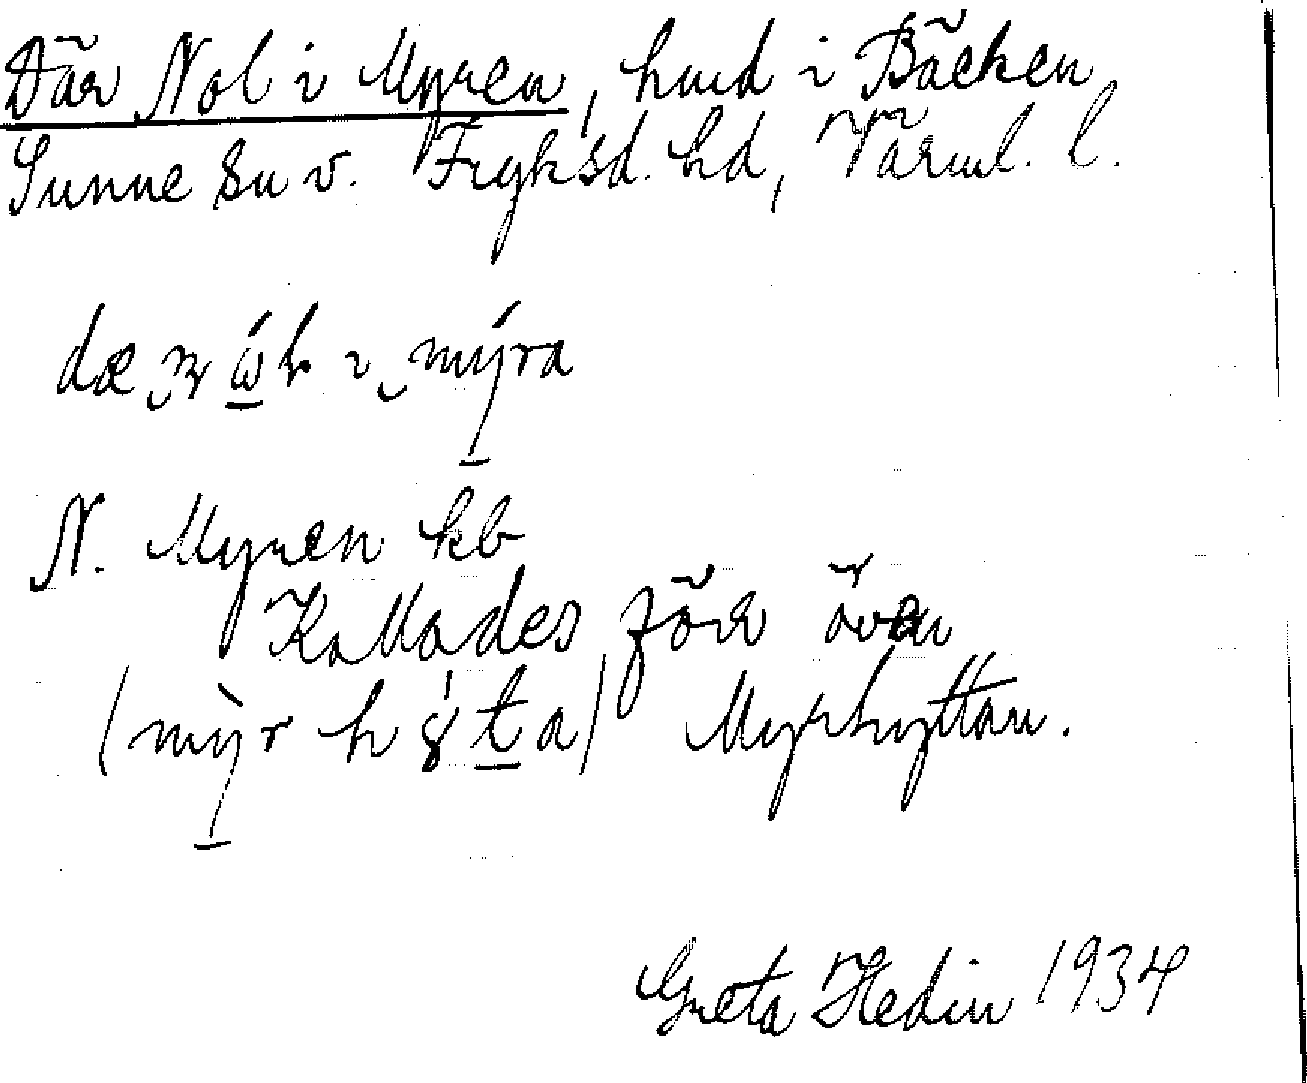 Där Nol i Myren, hmd i Bäcken
Sunne sn v. Fryksd. hd, Värml. l.
i mýra
N. Myren kb
Kallades förr även
Myrhyttan.
Greta Hedin 1934